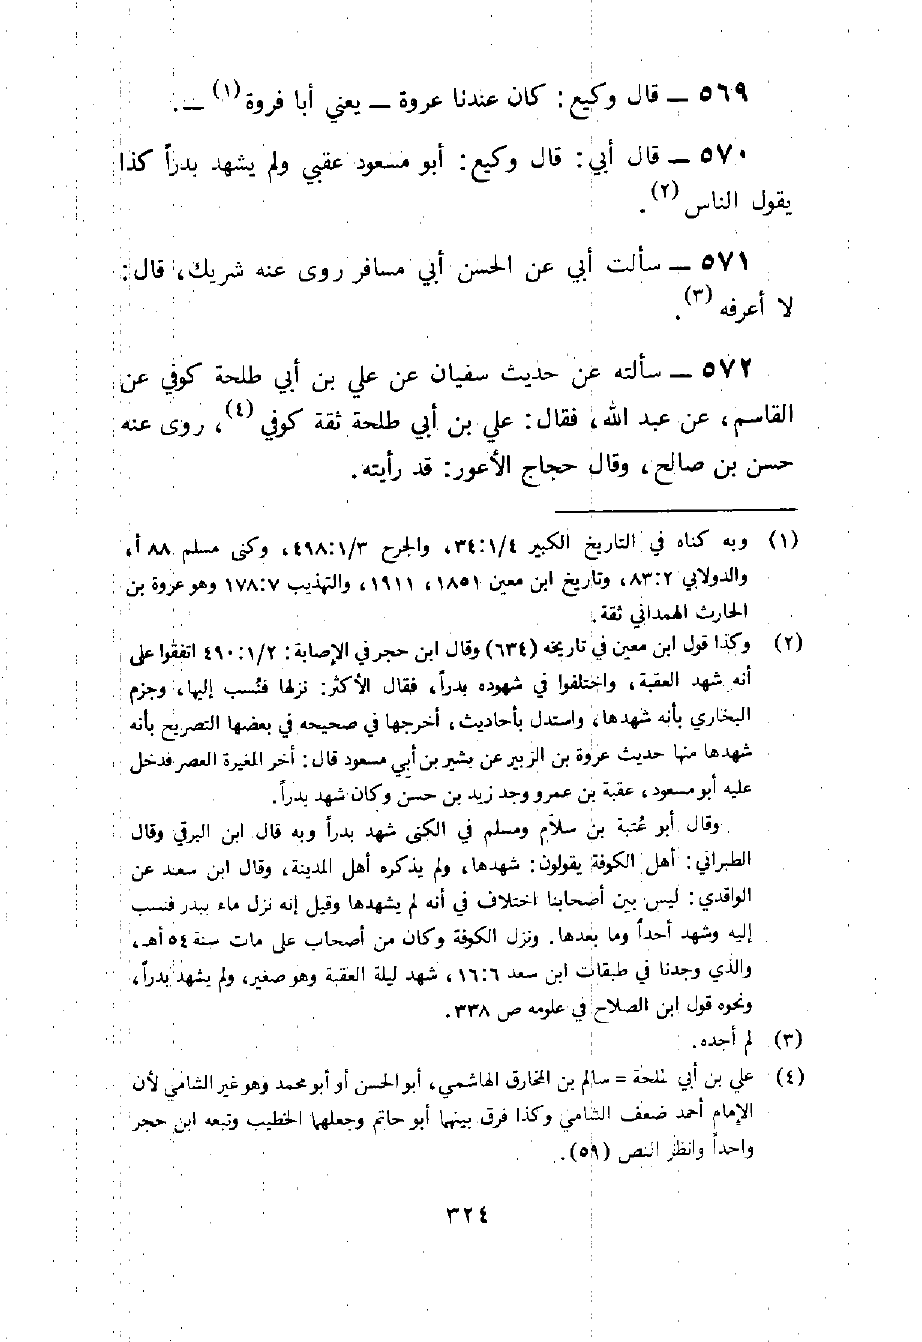 ٥٦٩ ــ قال وكيع: كان عندنا عروة ــ يعني أبا فروة (١) ــ.
٥٧٠ ــ قال أبي: قال وكيع: أبو مسعود عقبي ولم يشهد بدراً كذا
يقول الناس (٢).
٥٧١ ــ سألت أبي عن الحسن أبي مسافر روى عنه شريك، قال:
لا أعرفه (٣).
٥٧٢ ــ سألته عن حديث سفيان عن علي بن أبي طلحة كوفي عن
القاسم، عن عبد الله، فقال: علي بن أبي طلحة ثقة كوفي (٤)، روى عنه
حسن بن صالح، وقال حجاج الأعور: قد رأيته.
(١) وبه كناه في التاريخ الكبير ٣٤:١/٤، والجرح ٤٩٨:١/٣، وكنى مسلم ٨٨ أ،
والدولابي ٨٣:٢، وتاريخ ابن معين ١٨٥١، ١٩١١، والتهذيب ١٧٨:٧ وهو عروة بن
الحارث الهمداني ثقة.
(٢) وكذا قول ابن معين في تاريخه (٦٣٤) وقال ابن حجر في الإصابة: ٤٩٠:١/٢ اتفقوا على
أنه شهد العقبة، واختلفوا في شهوده بدراً، فقال الأكثر: نزلها فنُسب إليها، وجزم
البخاري بأنه شهدها، واستدل بأحاديث، أخرجها في صحيحه في بعضها التصريح بأنه
شهدها منها حديث عروة بن الزبير عن بشير بن أبي مسعود قال: أخر المغيرة العصر فدخل
عليه أبو مسعود، عقبة بن عمرو وجد زيد بن حسن وكان شهد بدراً.
وقال أبو عُتبة بن سلام ومسلم في الكنى شهد بدراً وبه قال ابن البرقي وقال
الطبراني: أهل الكوفة يقولون: شهدها، ولم يذكره أهل المدينة، وقال ابن سعد عن
الواقدي: ليس بين أصحابنا اختلاف في أنه لم يشهدها وقيل إنه نزل ماء ببدر فنسب
إليه وشهد أحداً وما بعدها. ونزل الكوفة وكان من أصحاب علي مات سنة ٥٤ أهـ،
والذي وجدنا في طبقات ابن سعد ١٦:٦، شهد ليلة العقبة وهو صغير، ولم يشهد بدراً،
ونحوه قول ابن الصلاح في علومه ص ٣٣٨.
(٣) لم أجده.
(٤) علي بن أبي طلحة = سالم بن المخارق الهاشمي، أبو الحسن أو أبو محمد وهو غير الشامي لأن
الإمام أحمد ضعف الشامي وكذا فرق بينهما أبو حاتم وجعلهما الخطيب وتبعه ابن حجر
واحداً وانظر النص (٥٩).
٣٢٤